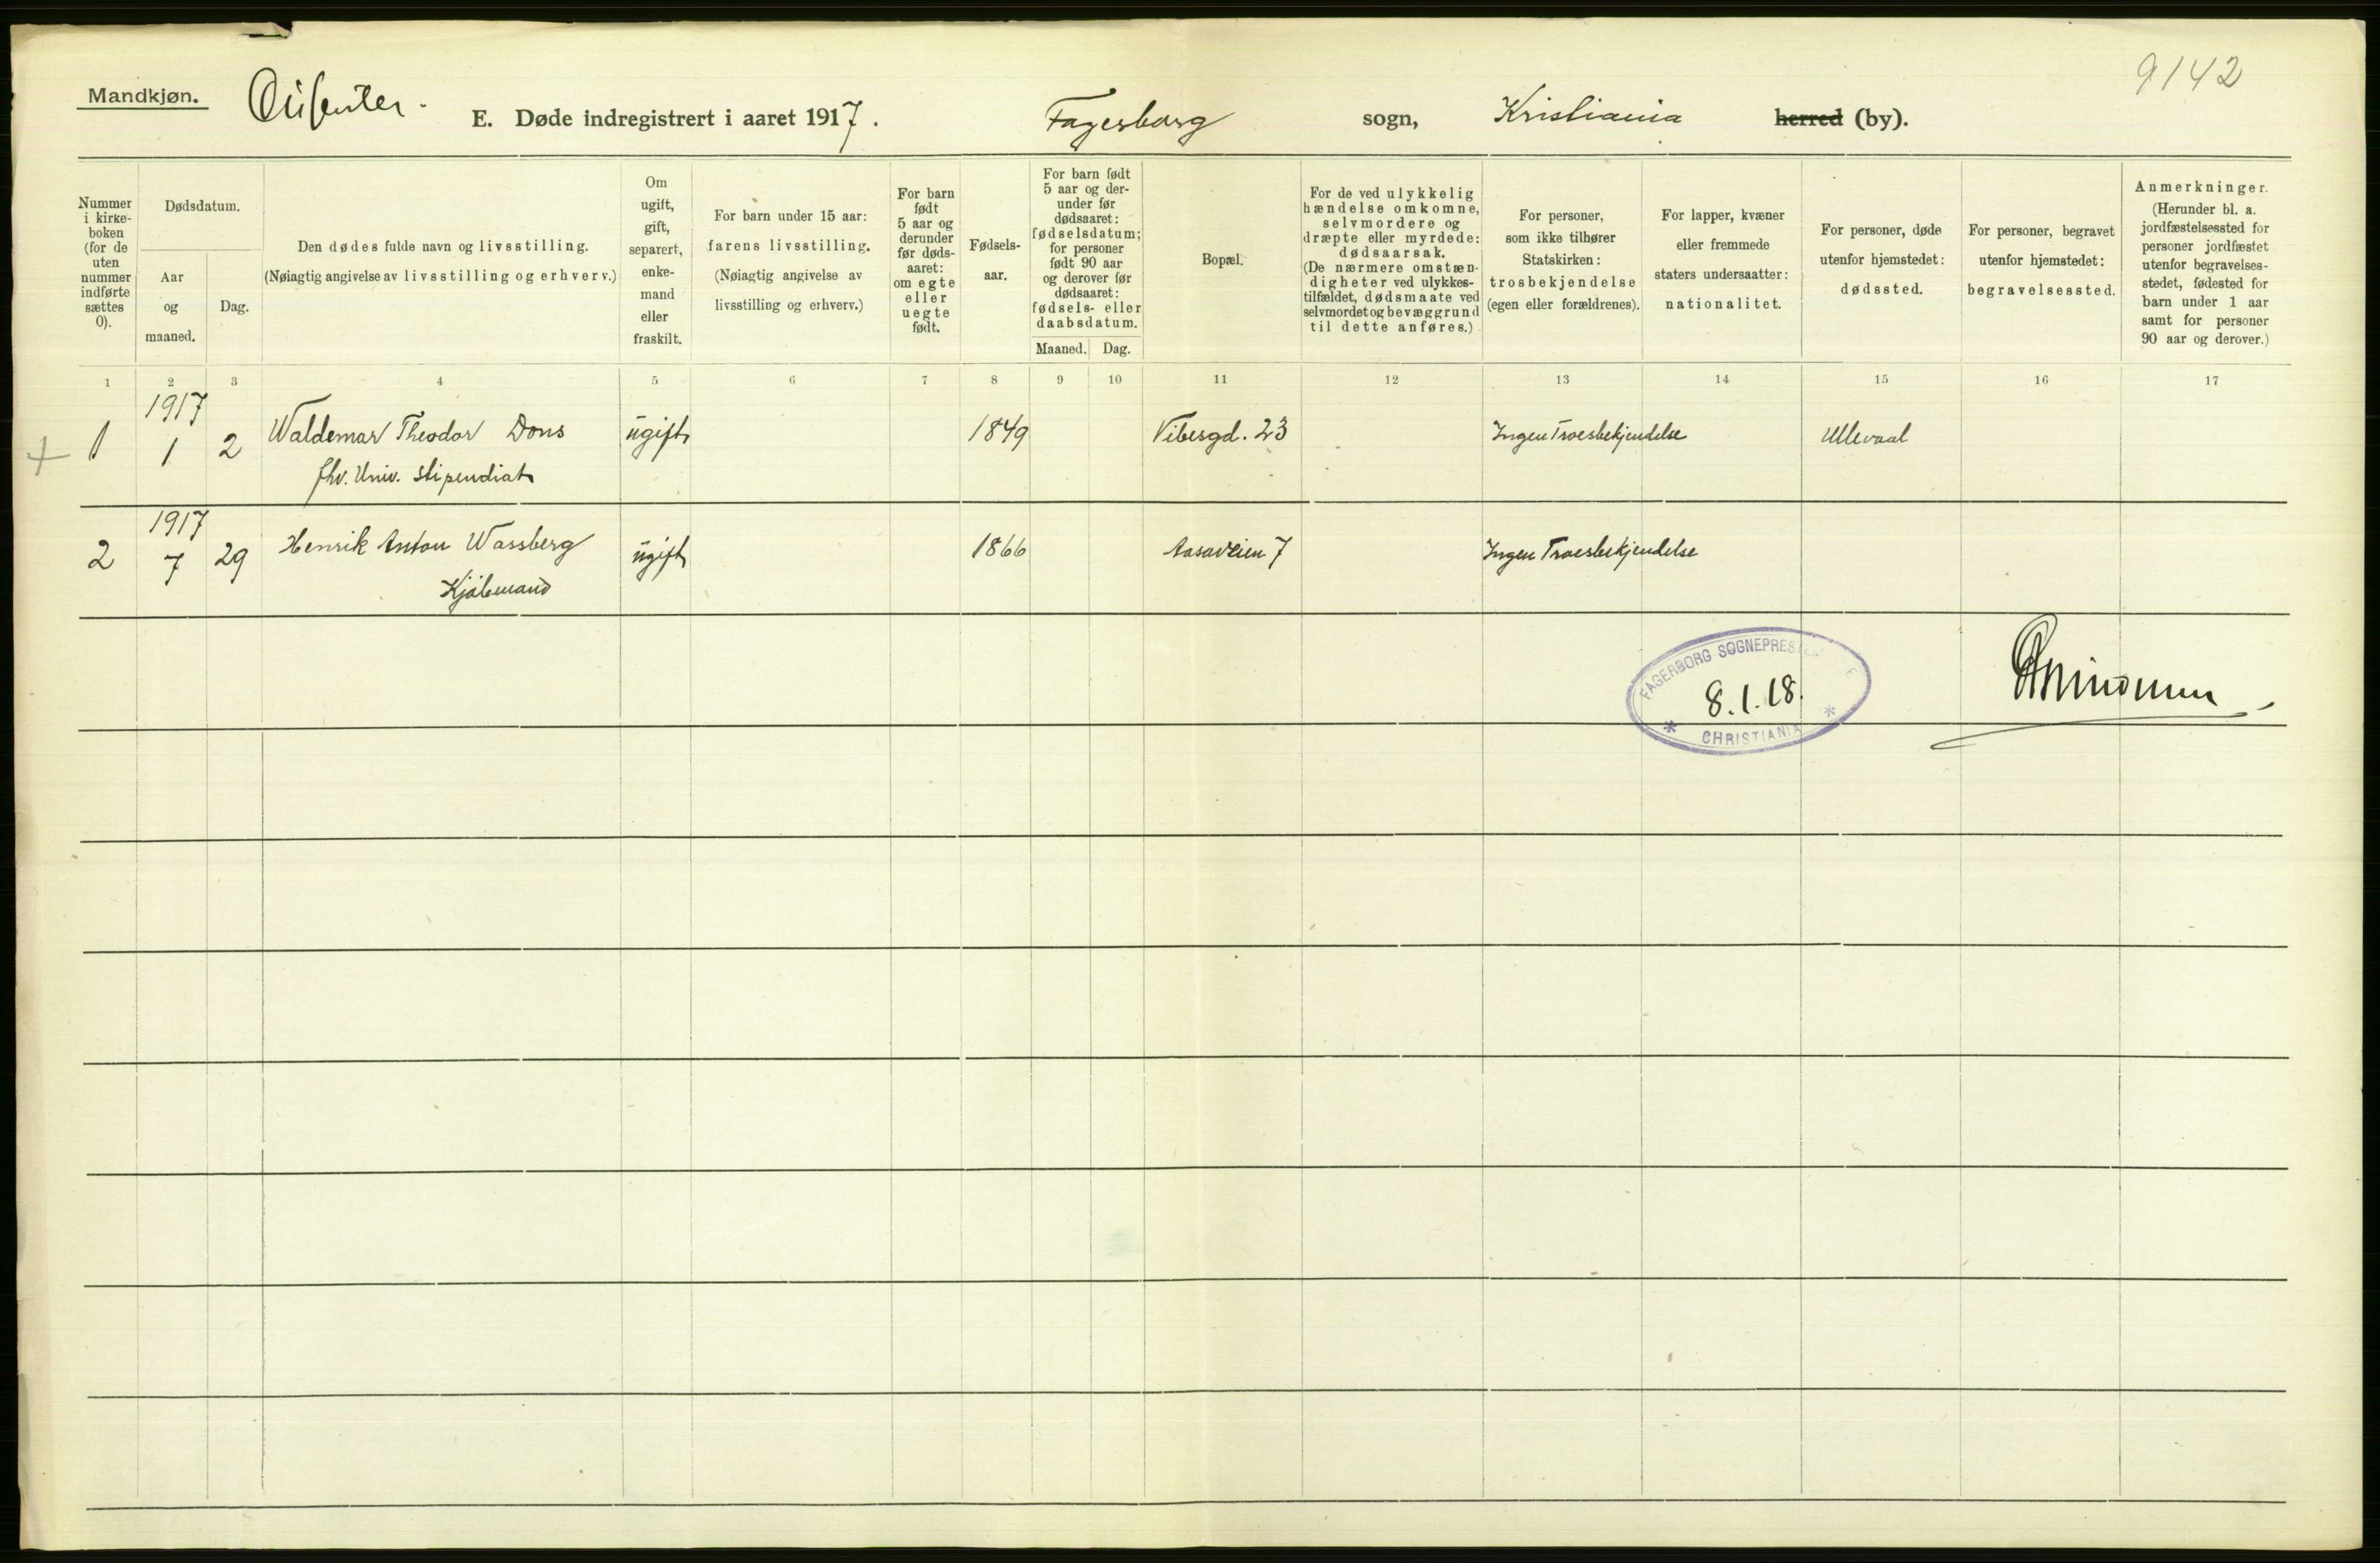 Mandkjøn.
9142
E. Døde indregistrert i aaret 1917. Fagerborg sogn, Kristiania herred (by).
Nummer i kirke-boken (for de uten nummer indførte sættes 0).
Dødsdatum.
Aar og maaned.
Dag.
Den dødes fulde navn og livsstilling.
(Nøiagtig angivelse av livsstilling og erhverv.)
Om ugift, gift, separert, enke-mand eller fraskilt.
For barn under 15 aar: farens livsstilling.
(Nøiagtig angivelse av livsstilling og erhverv.)
For barn født 5 aar og derunder før døds-aaret: om egte eller uegte født.
Fødsels-aar.
For barn født 5 aar og der-under før dødsaaret: fødselsdatum; for personer født 90 aar og derover før dødsaaret: fødsels- eller daabsdatum.
Maaned. Dag.
Bopæl.
For de ved ulykkelig hændelse omkomne, selvmordere og dræpte eller myrdede: dødsaarsak.
(De nærmere omstæn-digheter ved ulykkes-tilfældet, dødsmaate ved selvmordet og bevæggrund til dette anføres.)
For personer, som ikke tilhører Statskirken: trosbekjendelse (egen eller forældrenes).
For lapper, kvæner eller fremmede staters undersaatter: nationalitet.
For personer, døde utenfor hjemstedet: dødssted.
For personer, begravet utenfor hjemstedet: begravelsessted.
Anmerkninger.
(Herunder bl. a. jordfæstelsessted for personer jordfæstet utenfor begravelses-stedet, fødested for barn under 1 aar samt for personer 90 aar og derover.)
1 2 3 4 5 6 7 8 9 10 11 12 13 14 15 16 17
1917
+ 1 1 2 Waldemar Theodor Dons ugift 1849 Vibesgd. 23 Ingen Troesbekjendelse Ullevaal
fhv. Univ. stipendiat
1917
2 7 29 Henrik Anton Wassberg ugift 1866 Aasaveien 7 Ingen Troesbekjendelse
Kjøbmand
FAGERBORG SOGNEPREST
8.1.18.
* CHRISTIANIA *